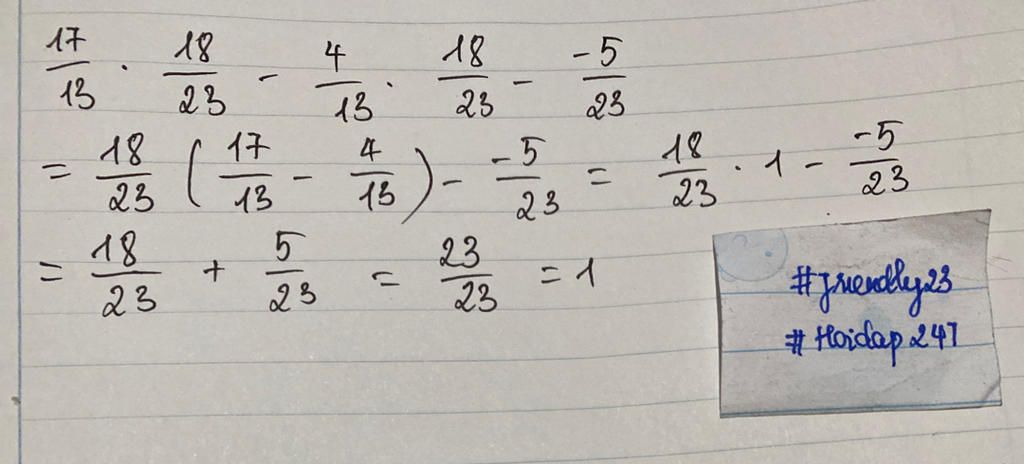 17/13 . 18/23 - 4/13 . 18/23 - -5/23
= 18/23 (17/13 - 4/13) - -5/23 = 18/23 . 1 - -5/23
= 18/23 + 5/23 = 23/23 = 1
#friendly23
#Hoidap247